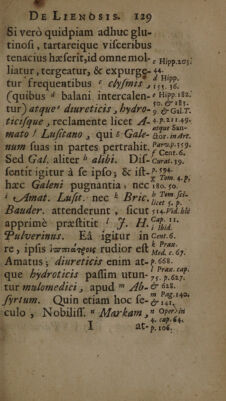 DE LIENOSIS. 129
Si verò quidpiam adhuc glu-
tinosi, tartareique visceribus
tenacius hæserit, id omne mol-
liatur, tergeatur, & expurge-
tur frequentibus c clysmis,
(quibus d balani intercalen-
tur) atque e diureticis, hydro-
ticisque, reclamente licet A-
mato f Lusitano, qui g Gale-
num suas in partes pertrahit.
Sed Gal. aliter h alibi. Dis-
sentit igitur à se ipso; & ist-
hæc Galeni pugnantia, nec
i Amat. Lusit. nec k Bric.
Bauder. attenderunt, sicut
apprimè præstitit l J. H.
Pulverinus. Eâ igitur in
re, ipsis rudior est
Amatus; diureticis enim at-
que hydroticis passim utun-
tur mulomedici, apud m Ab-
syrtum. Quin etiam hoc se-
culo, Nobiliss. n Markam,
I at-
c Hipp. 205.
44.
d Hipp.
155. 36.
e Hipp. 182.
50. & 185.
9. & Gal. T.
4. p. 211. 49.
atque San-
ctor. in Art.
Parv. p. 559.
f Cent. 6.
Curat. 19.
p. 594.
g Tom. 4. p.
180. 50.
h Tom. sci-
licet 5. p.
514. Vid. hîc
Cap. 11.
i Ibid.
Cent. 6.
k Prax.
Med. c. 67.
p. 668.
l Prax. cap.
75. p. 627.
& 628.
m Pag. 140.
& 141.
n Oper. in
4. cap. 64.
p. 106.